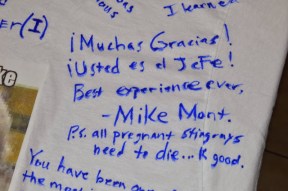 olls
I learned
er(I)
¡Muchas Gracias!
¡Usted es el Jefe!
Best experience ever,
-Mike Mont.
P.s. all pregnant stingrays
need to die... K good.
You have been
the mo